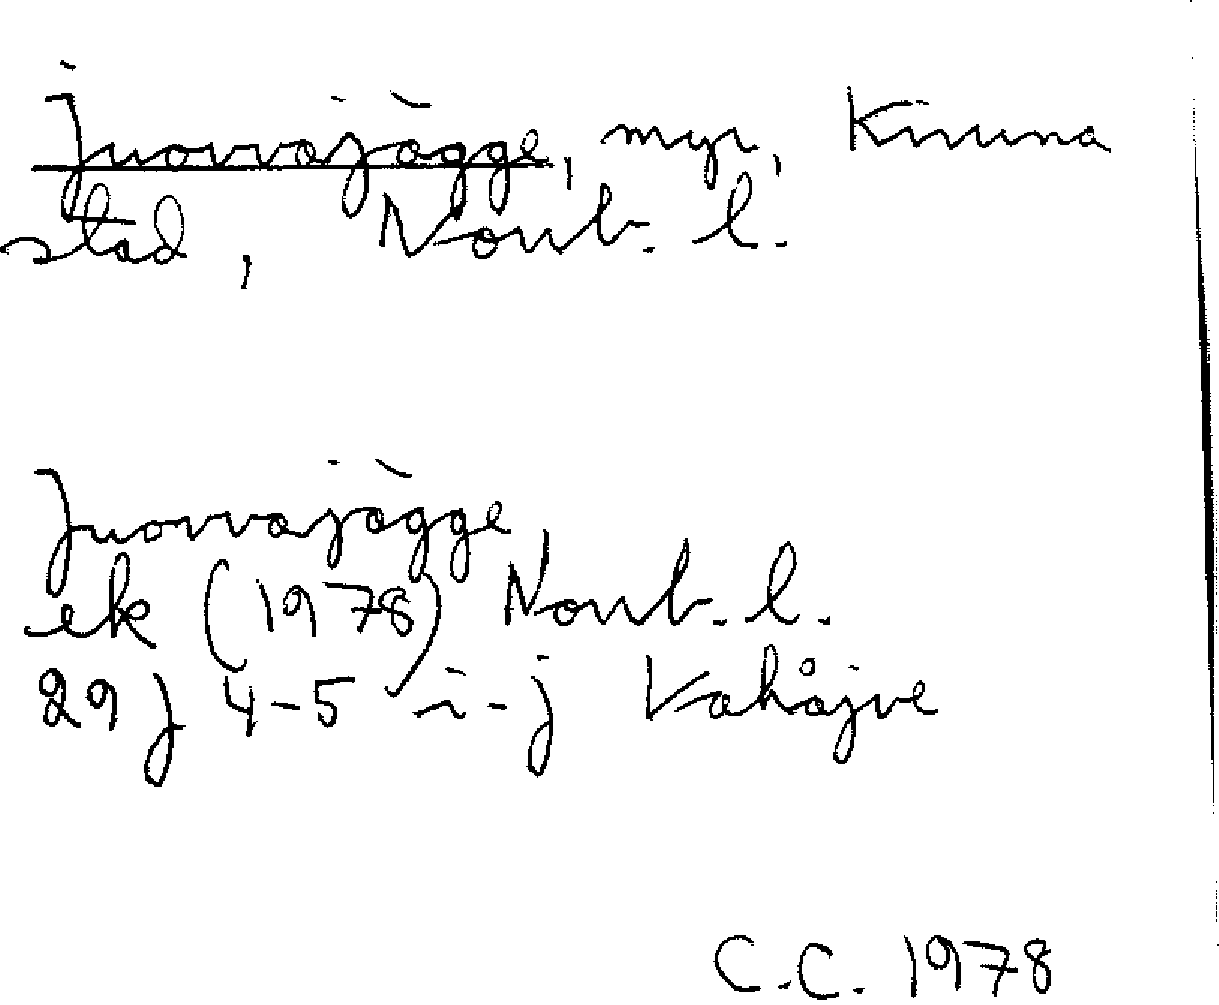 Juovvajàgge, myr, Kiruna
stad, Norrb. l.
Juovvajàgge
ek (1978) Norrb. l.
29 J 4-5 i-j Kahåjve
C.C. 1978